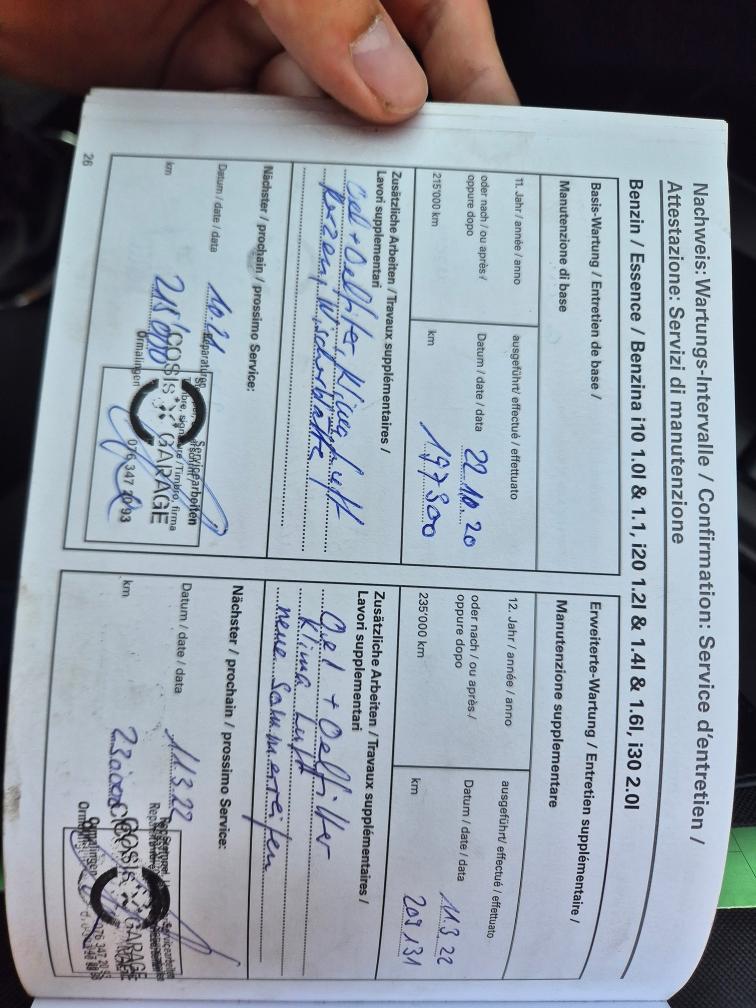 Nachweis: Wartungs-Intervalle / Confirmation: Service d'entretien /
Attestazione: Servizi di manutenzione
Benzin / Essence / Benzina i10 1.0l & 1.1, i20 1.2l & 1.4l & 1.6l, i30 2.0l
Basis-Wartung / Entretien de base /
Manutenzione di base
11. Jahr / année / anno
oder nach / ou après /
oppure dopo
215'000 km
ausgeführt/ effectué / effettuato
Datum / date / data 22.10.20
km 197'900
Zusätzliche Arbeiten / Travaux supplémentaires /
Lavori supplementari
Oel + Oelfilter, Klima Luft
Kerzen, Wischerblätter
Nächster / prochain / prossimo Service:
Datum / date / data 10.21
km 215'000
Reparaturen Servicearbeiten
COSIS GARAGE
Ormalingen 076 347 20 93
26
Erweiterte-Wartung / Entretien supplémentaire /
Manutenzione supplementare
12. Jahr / année / anno
oder nach / ou après /
oppure dopo
235'000 km
ausgeführt/ effectué / effettuato
Datum / date / data 11.3.22
km 209 131
Zusätzliche Arbeiten / Travaux supplémentaires /
Lavori supplementari
Oel + Oelfilter
Klima Luft
neue Sommerreifen
Nächster / prochain / prossimo Service:
Datum / date / data 11.3.22
km 230000
COSIS GARAGE
Ormalingen 076 347 20 93